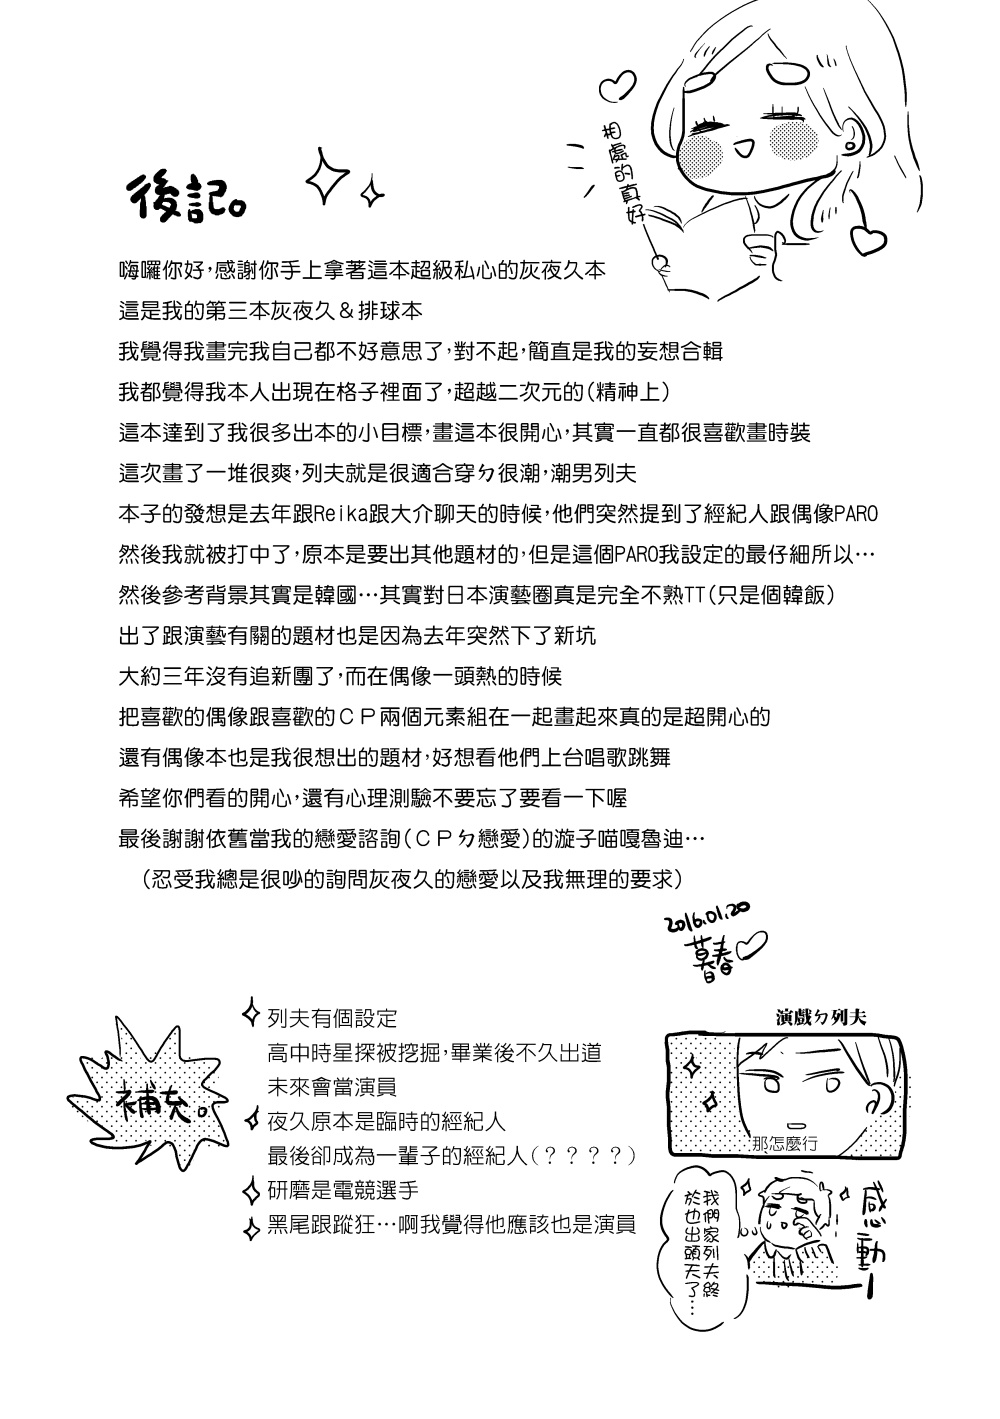 相處的真好
後記。
嗨囉你好，感謝你手上拿著這本超級私心的灰夜久本
這是我的第三本灰夜久＆排球本
我覺得我畫完我自己都不好意思了，對不起，簡直是我的妄想合輯
我都覺得我本人出現在格子裡面了，超越二次元的（精神上）
這本達到了我很多出本的小目標，畫這本很開心，其實一直都很喜歡畫時裝
這次畫了一堆很爽，列夫就是很適合穿ㄉ很潮，潮男列夫
本子的發想是去年跟Reika跟大介聊天的時候，他們突然提到了經紀人跟偶像PARO
然後我就被打中了，原本是要出其他題材的，但是這個PARO我設定的最仔細所以…
然後參考背景其實是韓國…其實對日本演藝圈真是完全不熟TT（只是個韓飯）
出了跟演藝有關的題材也是因為去年突然下了新坑
大約三年沒有追新團了，而在偶像一頭熱的時候
把喜歡的偶像跟喜歡的ＣＰ兩個元素組在一起畫起來真的是超開心的
還有偶像本也是我很想出的題材，好想看他們上台唱歌跳舞
希望你們看的開心，還有心理測驗不要忘了要看一下喔
最後謝謝依舊當我的戀愛諮詢（ＣＰㄉ戀愛）的漩子喵嘎魯迪…
（忍受我總是很吵的詢問灰夜久的戀愛以及我無理的要求）
2016.01.20
暮春
補充。
列夫有個設定
高中時星探被挖掘，畢業後不久出道
未來會當演員
夜久原本是臨時的經紀人
最後卻成為一輩子的經紀人（？？？？）
研磨是電競選手
黑尾跟蹤狂…啊我覺得他應該也是演員
演戲ㄉ列夫
那怎麼行
我們家列夫終
於也出頭天了…
感動ー